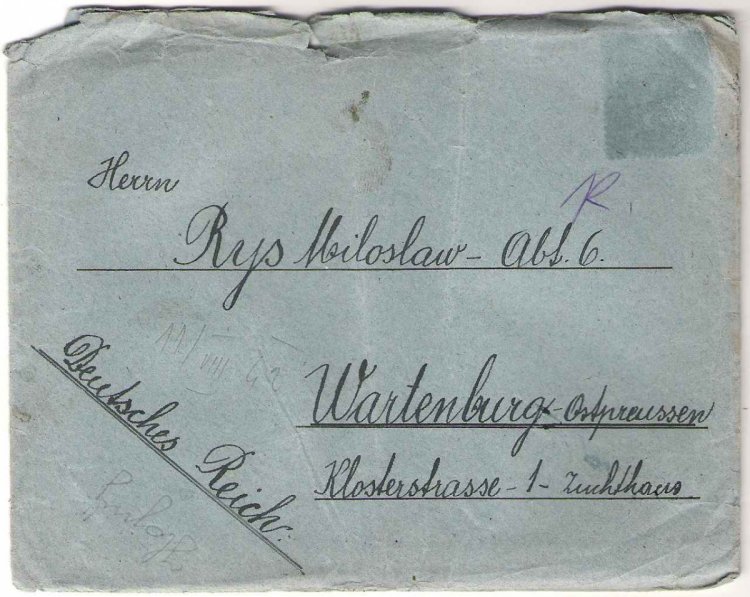 Herrn
R
Rys Miloslaw - Abt. 6.
11/VIII 42
Wartenburg - Ostpreussen
Klosterstrasse - 1 - Zuchthaus
Deutsches Reich.